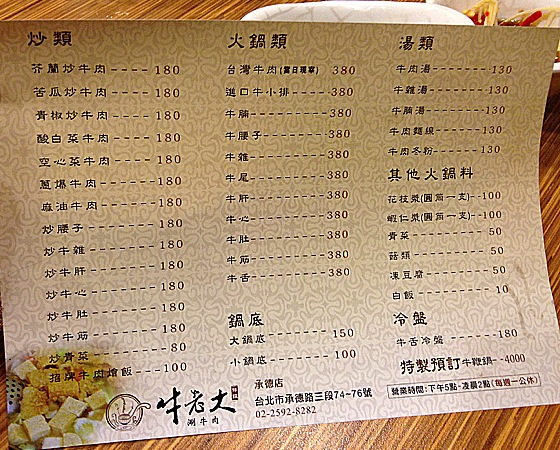 炒類
芥蘭炒牛肉----180
苦瓜炒牛肉----180
青椒炒牛肉----180
酸白菜牛肉----180
空心菜牛肉----180
蔥爆牛肉------180
麻油牛肉------180
炒腰子--------180
炒牛雜--------180
炒牛肝--------180
炒牛心--------180
炒牛肚--------180
炒牛筋--------180
炒青菜--------80
招牌牛肉燴飯--100
火鍋類
台灣牛肉(當日現宰) 380
進口牛小排----380
牛腩----------380
牛腰子--------380
牛雜----------380
牛尾----------380
牛肝----------380
牛心----------380
牛肚----------380
牛筋----------380
牛舌----------380
鍋底
大鍋底--------150
小鍋底--------100
湯類
牛肉湯--------130
牛雜湯--------130
牛腩湯--------130
牛肉麵線------130
牛肉冬粉------130
其他火鍋料
花枝漿(圓筒一支)--100
蝦仁漿(圓筒一支)--100
青菜----------50
菇類----------50
凍豆腐--------50
白飯----------10
冷盤
牛舌冷盤------180
特製預訂牛鞭鍋--4000
營業時間:下午5點-凌晨2點(每週一公休)
牛老大
涮牛肉
承德店
台北市承德路三段74~76號
02-2592-8282